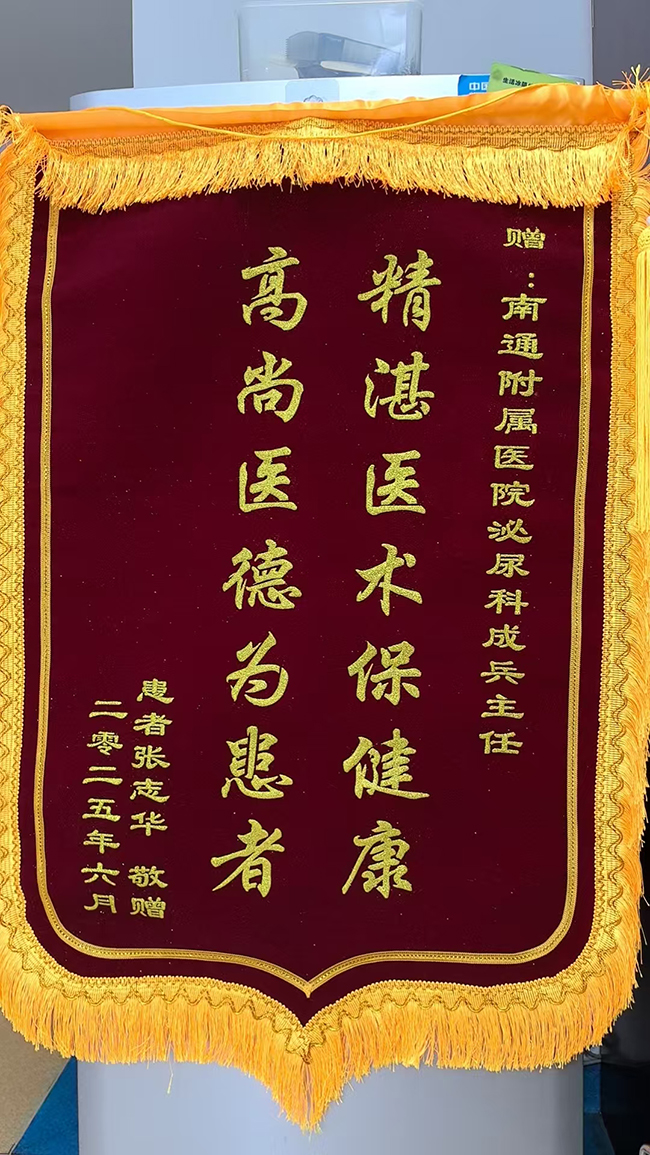 赠：南通附属医院泌尿科成兵主任
精湛医术保健康
高尚医德为患者
患者张志华 敬赠
二零二五年六月
中国